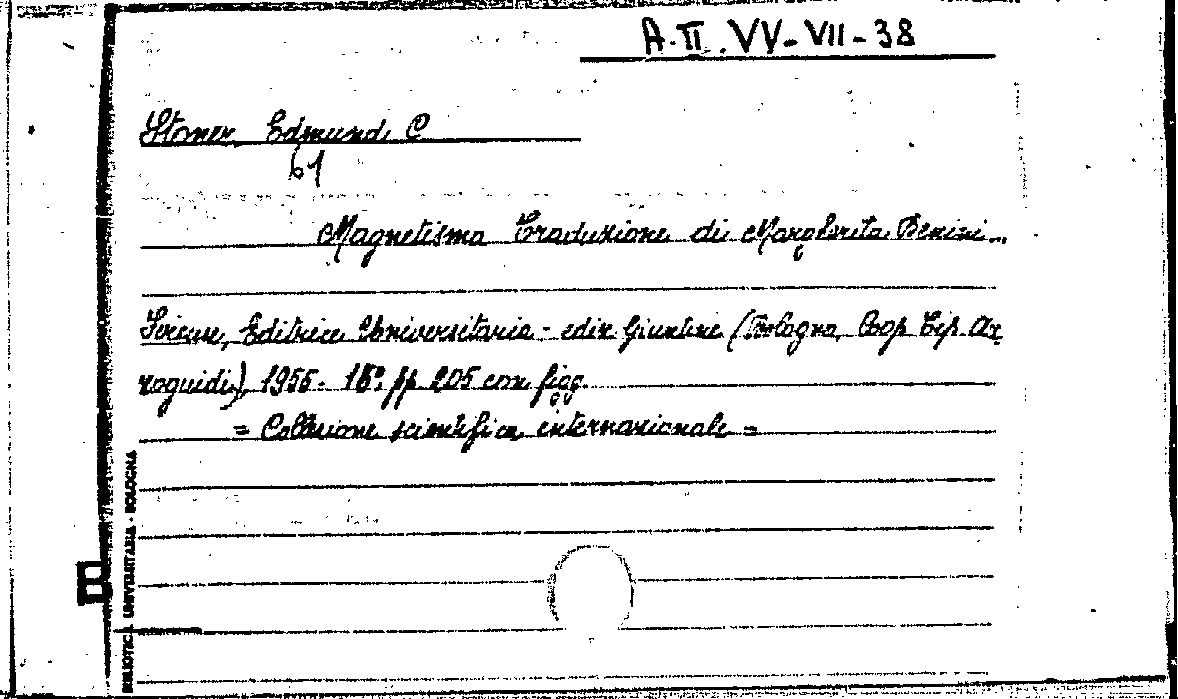 A.II. VV-VII-38
Stoner Edmund C
61
Magnetismo Traduzione di Margherita Benini...
Firenze, Editrice Universitaria - ediz Giuntine (Bologna, Coop Tip. Az
zoguidi), 1955. 16° pp 205 con figg.
= Collezione scientifica internazionale =
BIBLIOTECA UNIVERSITARIA - BOLOGNA